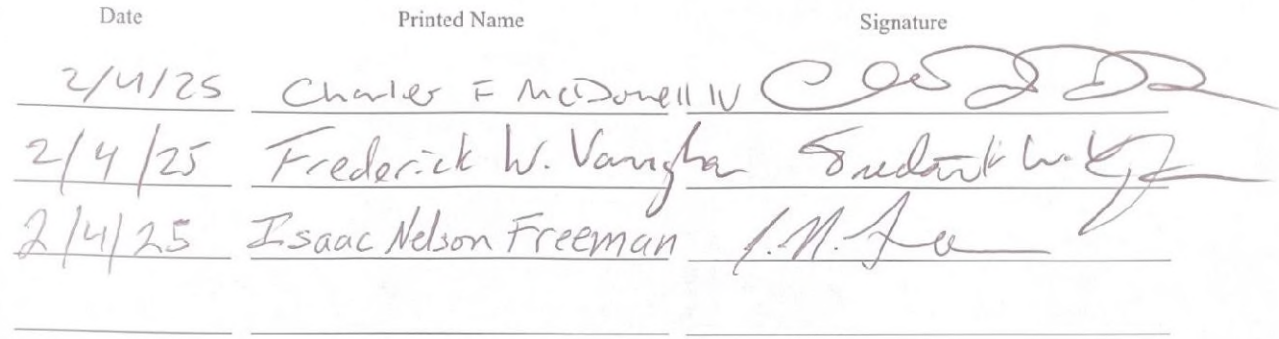 Date Printed Name Signature
2/4/25 Charles F McDonell IV
2/4/25 Frederick W. Vaughan Frederick W.
2/4/25 Isaac Nelson Freeman I.N. Freeman